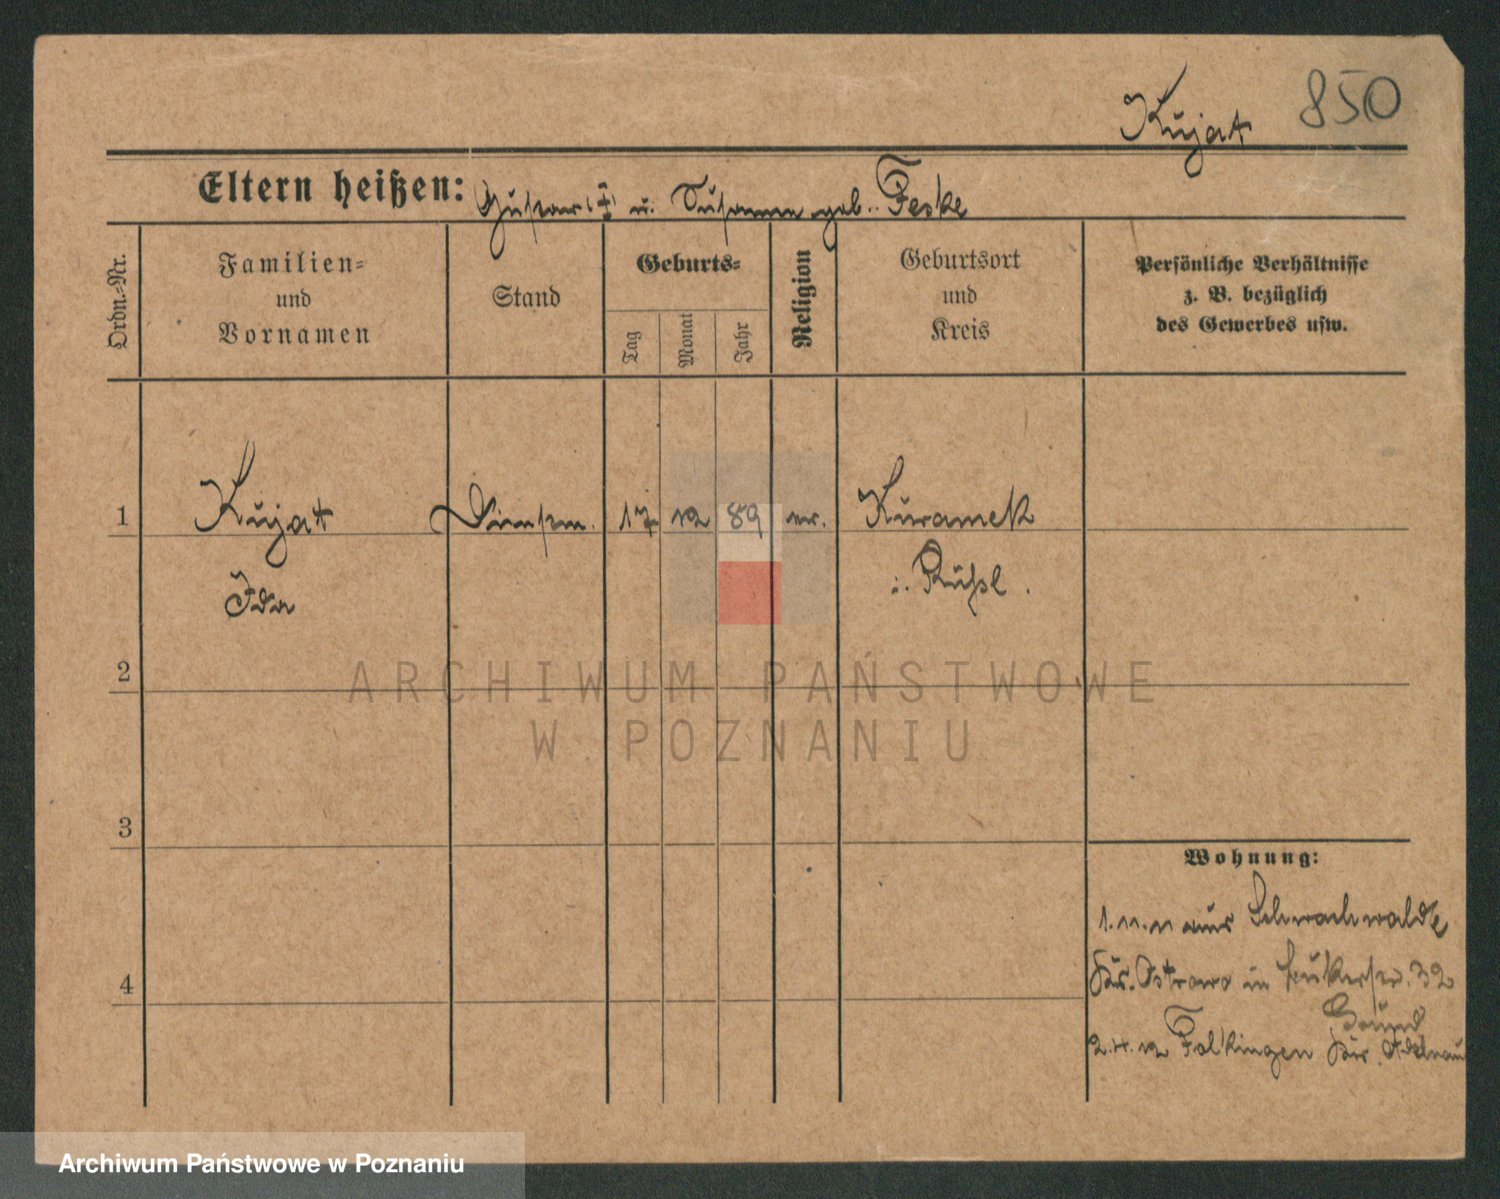 850
Kujat
Eltern heißen: Gustav (†) u. Susanna geb. Feske
Ordn.-Nr.
Familien-
und
Vornamen
Stand
Geburts-
Tag
Monat
Jahr
Religion
Geburtsort
und
Kreis
Persönliche Verhältnisse
z. B. bezüglich
des Gewerbes usw.
1 Kujat Dienstm. 17 12 89 ev. Kuramek
Ida i. Rußl.
2
ARCHIWUM PAŃSTWOWE
W POZNANIU
3
4
Wohnung:
1.11.11 aus Schwachwalde
Kr. Ostrowo in 32
2.4.12 Falkingen Kr. Adelnau
Archiwum Państwowe w Poznaniu